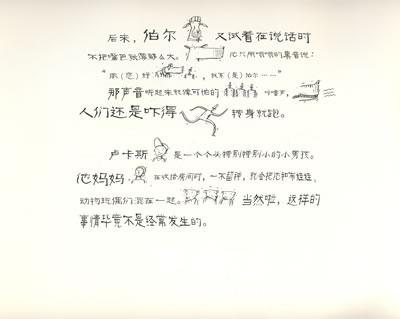 后来，伯尔 又试着在说话时
不把嘴巴张得那么大。 他只用嗡嗡的鼻音说：
“ 你（您）好 我不（是）伯尔……”
那声音听起来就像可怕的 嚎声，
人们还是吓得 转身就跑。
卢卡斯 是一个个头特别特别小的小男孩。
他妈妈 在收拾房间时，一不留神，就会把他和布娃娃、
动物玩偶们混在一起。 当然啦，这样的
事情毕竟不是经常发生的。